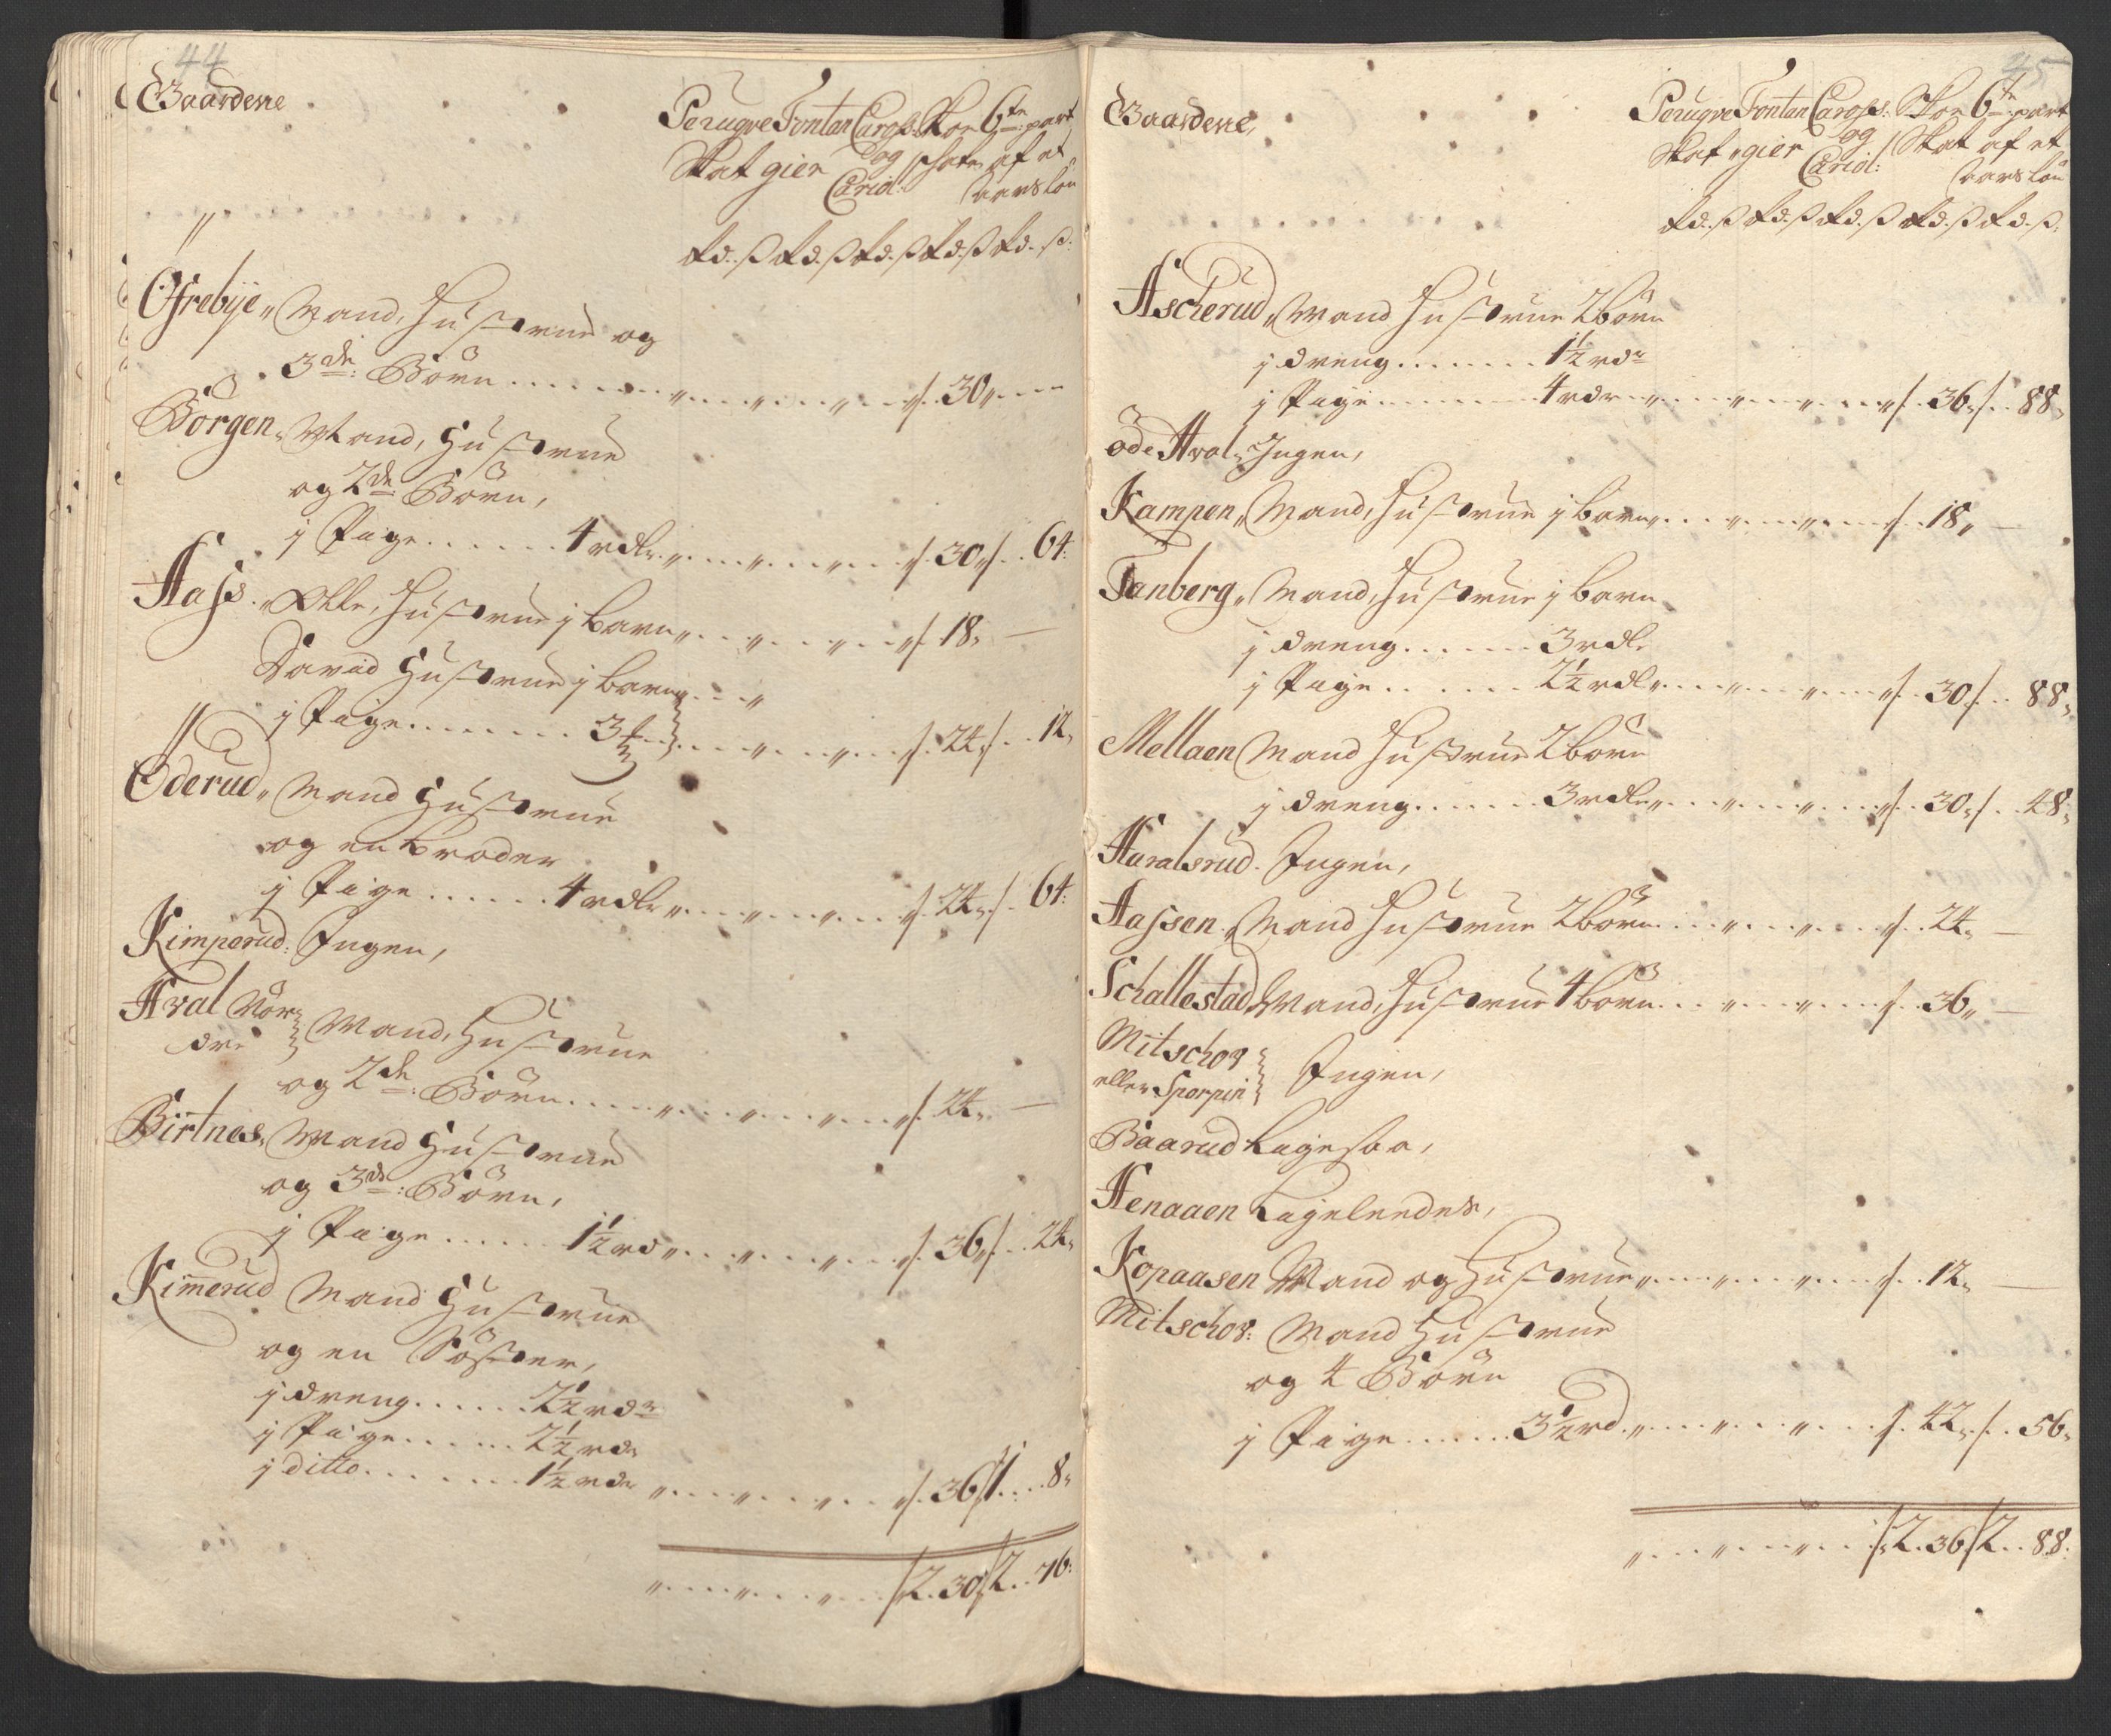 44
Gaardene
Peruqve Fontan Caross: Skoe 6te: part
Skat gier og skat af et
Cariol: Aars løn
Rd. ß Rd. ß Rd. ß Rd. ß Rd. ß:
Ofrebÿe, Mand, Hustrue og
3de: Børn 30
Börgen, Mand, Hustrue
og 2de Børn,
j Pige 4 rdlr 30 64:
Aass. Olle, Hustrue j barn 18
David Hustrue j barn
j Pige 3 24 12
Öderud, Mand Hustrue
og en broder
j Pige 4 rdlr 24 64:
Kimperud: Ingen,
Hval Nör
dre Mand, Hustrue
og 2de: Børn 24
Birtnes, Mand Hustrue
og 3de: Børn,
j Pige 1½ rd 36 24
Kim̄erud Mand Hustrue
og en Søster,
j dreng 2½ rdr
j Pige 2½ rdr
j ditto 1½ rdr 36 1 8
2 30 2 76:
45
Gaardene,
Peruqve Fontan Caross: Skoe 6te: part
Skat gier og Skat af et
Cariol: Aars løn
Rd. ß Rd. ß Rd. ß Rd. ß Rd. ß:
Ascherud, Mand Hustrue 2 børn
j dreng 1½ rdr
j Pige 4 rdr 36 88
øde Hval, Ingen,
Kampen, Mand, Hustrue j barn 18
Tanberg, Mand, Hustrue j barn
j dreng 3 rdlr
j Pige 2½ rdlr 30 88
Mellaen Mand Hustrue 2 børn
j dreng 3 rdlr 30 48
Haralsrud. Ingen,
Aassen, Mand Hustrue 2 børn 24
Schallestad Mand, Hustrue 4 børn 36
Mitschog
eller Sporpin Ingen,
Baarud
Henaaen
Kopaasen Mand og Hustrue 12
Mitschog: Mand Hustrue
og 4 Børn
j Pige 3½ rd 42 56
2 36 2 88: